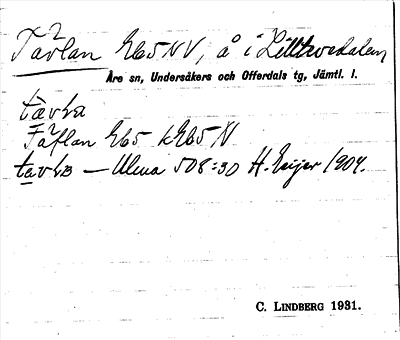 Tåvlan Eb5NV, å i Lilltvedalen
Åre sn, Undersåkers och Offerdals tg, Jämtl. l.
Tåflan Eb5 kEb5N
— Ulma 508:30 H. Geijer 1904.
C. LINDBERG 1931.